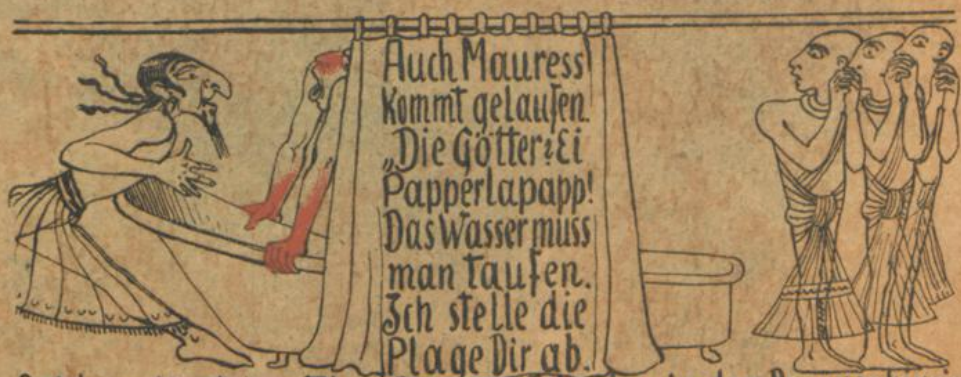 Auch Mauress
kommt gelaufen.
„Die Götter? Ei
Papperlapapp!
Das Wasser muss
man taufen.
Ich stelle die
Plage Dir ab.